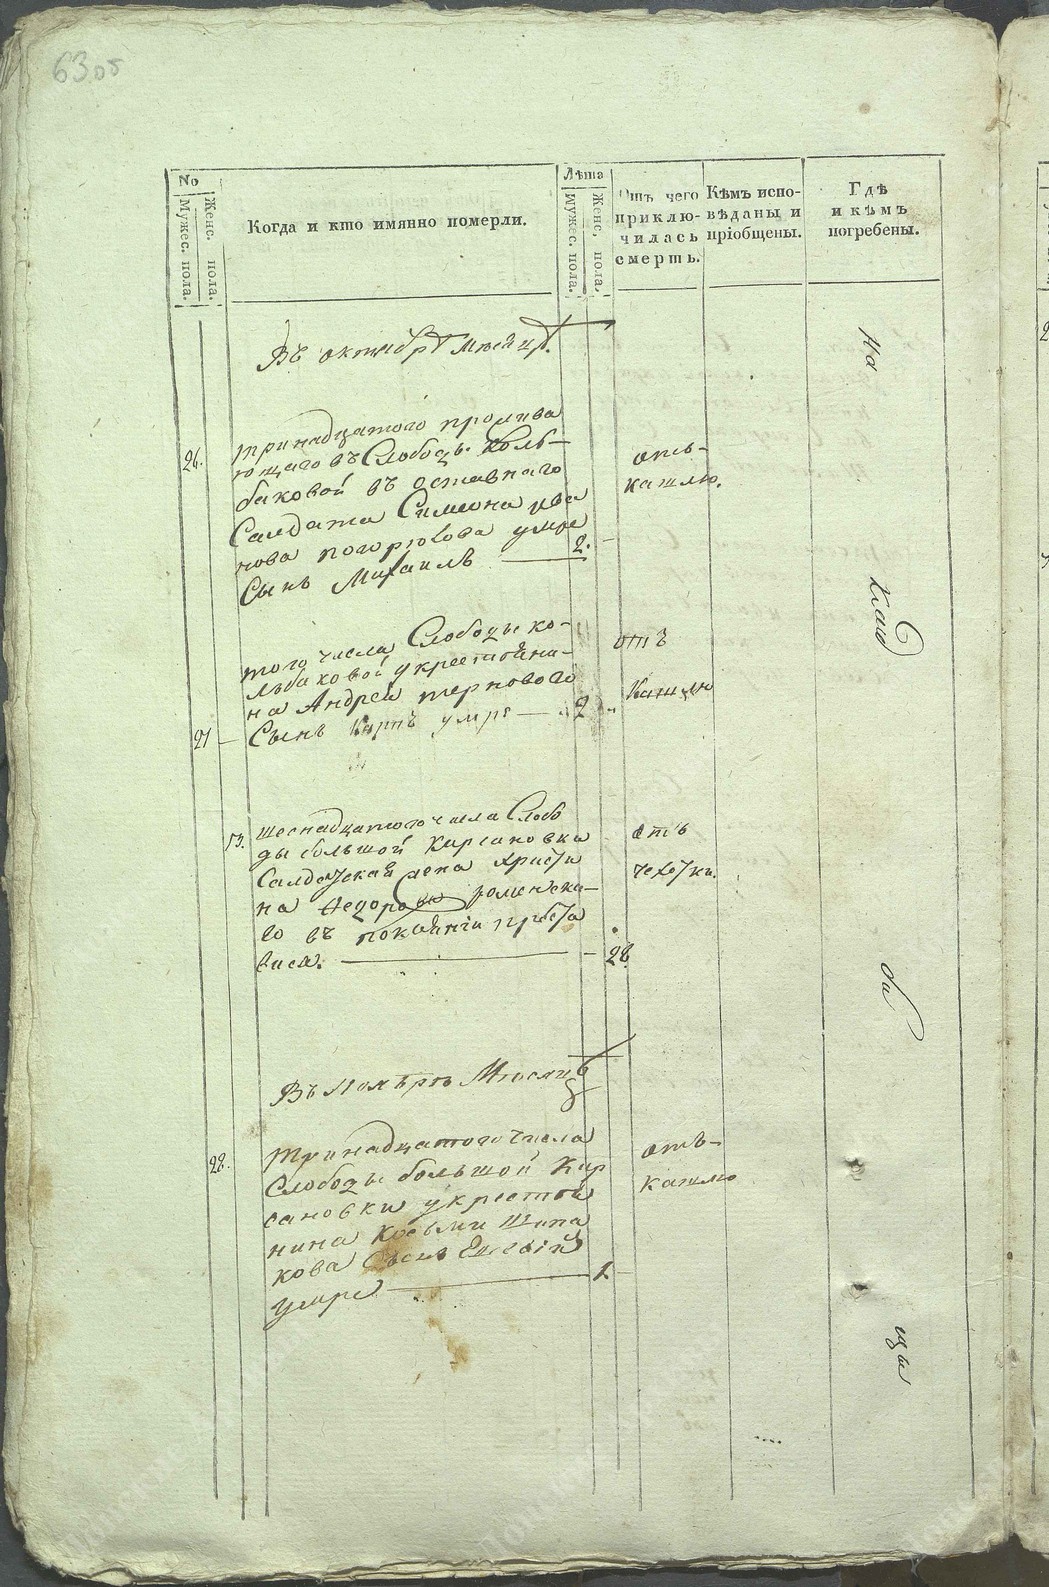 63 об
No
Мужес. пола.
Женс. пола.
Когда и кто имянно померли.
Лѣта
Мужес. пола.
Женс. пола.
Отъ чего
приклю-
чилась
смерть.
Кѣмъ испо-
вѣданы и
пріобщены.
Гдѣ
и кѣмъ
погребены.
Въ октябрѣ мѣсяцѣ.
26.
тринадцатого прожива
ющаго въ Слободѣ Коль-
баковой въ оставнаго
Салдата Симиона
нова умре
Сынъ Михаилъ 2.
отъ-
кашлю.
того числа Слободы ко-
льбаковой укрестьяни-
на Андрея тернового
27 Сынъ Карпъ умре 2
отъ
Кашлю
53. шеснадцатого числа Слобо
ды большой Кирсановки
Салдатская жена Христи
на Федорова роменска-
го въ покаянiи преста
вися. 28.
отъ
чехотки.
Въ Ноябрѣ Мѣсяцѣ
28. тринадцатого числа
Слободы большой Кир
сановки укрестья
нина Косьми Шипа
кова Сынъ
умре 1
отъ-
кашлю
На
клад
би
щи